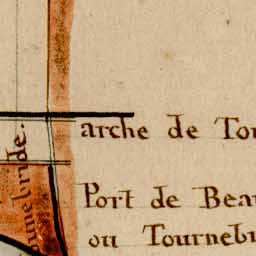 arche de Tou
Port de Beau
ou Tournebri
unebride.